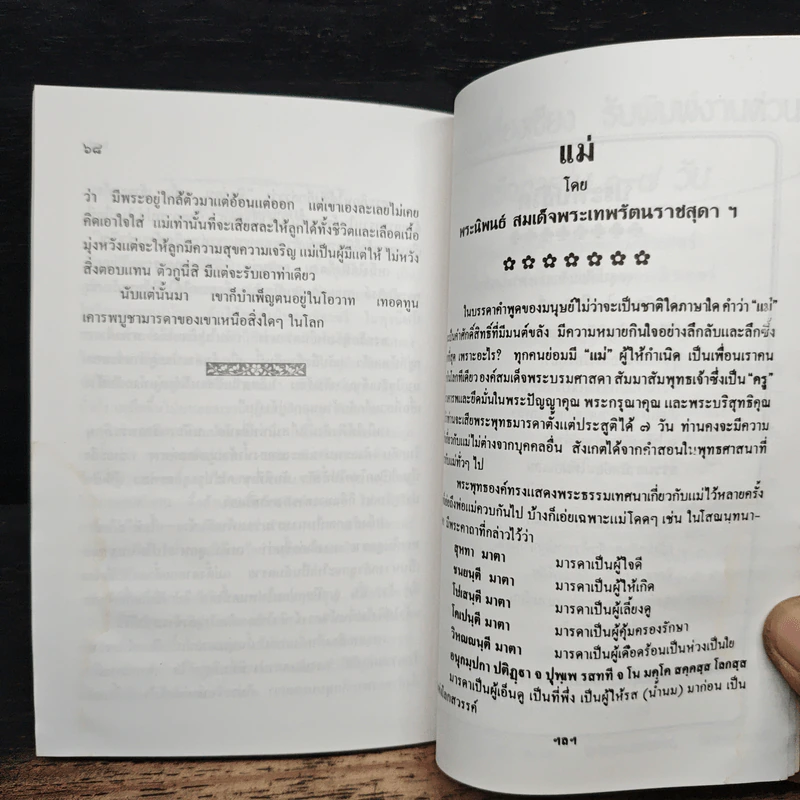 ๖๘
ว่า มีพระอยู่ใกล้ตัวมาแต่อ้อนแต่ออก แต่เขาเองละเลยไม่เคย
คิดเอาใจใส่ แม่เท่านั้นที่จะเสียสละให้ลูกได้ทั้งชีวิตและเลือดเนื้อ
มุ่งหวังแต่จะให้ลูกมีความสุขความเจริญ แม่เป็นผู้มีแต่ให้ ไม่หวัง
สิ่งตอบแทน ตัวกูนี่สิ มีแต่จะรับเอาท่าเดียว
นับแต่นั้นมา เขาก็บำเพ็ญตนอยู่ในโอวาท เทอดทูน
เคารพบูชามารดาของเขาเหนือสิ่งใดๆ ในโลก
แม่
โดย
พระนิพนธ์ สมเด็จพระเทพรัตนราชสุดา ฯ
ในบรรดาคำพูดของมนุษย์ไม่ว่าจะเป็นชาติใดภาษาใด คำว่า "แม่"
เป็นคำศักดิ์สิทธิ์ที่มีมนต์ขลัง มีความหมายกินใจอย่างลึกลับและลึกซึ้ง
ที่สุด เพราะอะไร? ทุกคนย่อมมี "แม่" ผู้ให้กำเนิด เป็นเพื่อนเราคน
ในโลกทีเดียว องค์สมเด็จพระบรมศาสดา สัมมาสัมพุทธเจ้าซึ่งเป็น "ครู"
เคารพและยึดมั่นในพระปัญญาคุณ พระกรุณาคุณ และพระบริสุทธิคุณ
ท่านจะเสียพระพุทธมารดาตั้งแต่ประสูติได้ ๗ วัน ท่านคงจะมีความ
เกี่ยวกับแม่ไม่ต่างจากบุคคลอื่น สังเกตได้จากคำสอนในพุทธศาสนาที่
กับแม่ทั่วๆ ไป
พระพุทธองค์ทรงแสดงพระธรรมเทศนาเกี่ยวกับแม่ไว้หลายครั้ง
เอ่ยถึงพ่อแม่ควบกันไป บ้างก็เอ่ยเฉพาะแม่โดดๆ เช่น ในโสณนฺทนา-
มีพระคาถาที่กล่าวไว้ว่า
สุหทา มาตา มารดาเป็นผู้ใจดี
ชนยนฺตี มาตา มารดาเป็นผู้ให้เกิด
โปเสนฺตี มาตา มารดาเป็นผู้เลี้ยงดู
โคเปนฺตี มาตา มารดาเป็นผู้คุ้มครองรักษา
วิหญฺญนฺตี มาตา มารดาเป็นผู้เดือดร้อนเป็นห่วงเป็นใย
อนุกมฺปกา ปติฏฺฐา จ ปุพฺเพ รสทที จ โน มคฺโค สคฺคสฺส โลกสฺส
มารดาเป็นผู้เอ็นดู เป็นที่พึ่ง เป็นผู้ให้รส (น้ำนม) มาก่อน เป็น
โลกสวรรค์